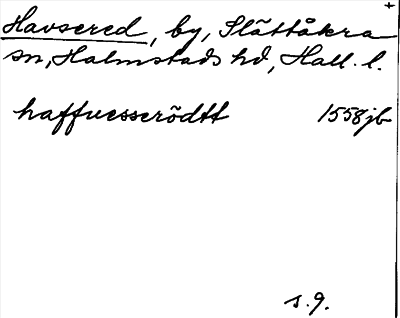 Havsered, by, Slättåkra
sn, Halmstads hd, Hall. l.
haffuesserödtt 1558jb
s. 9.